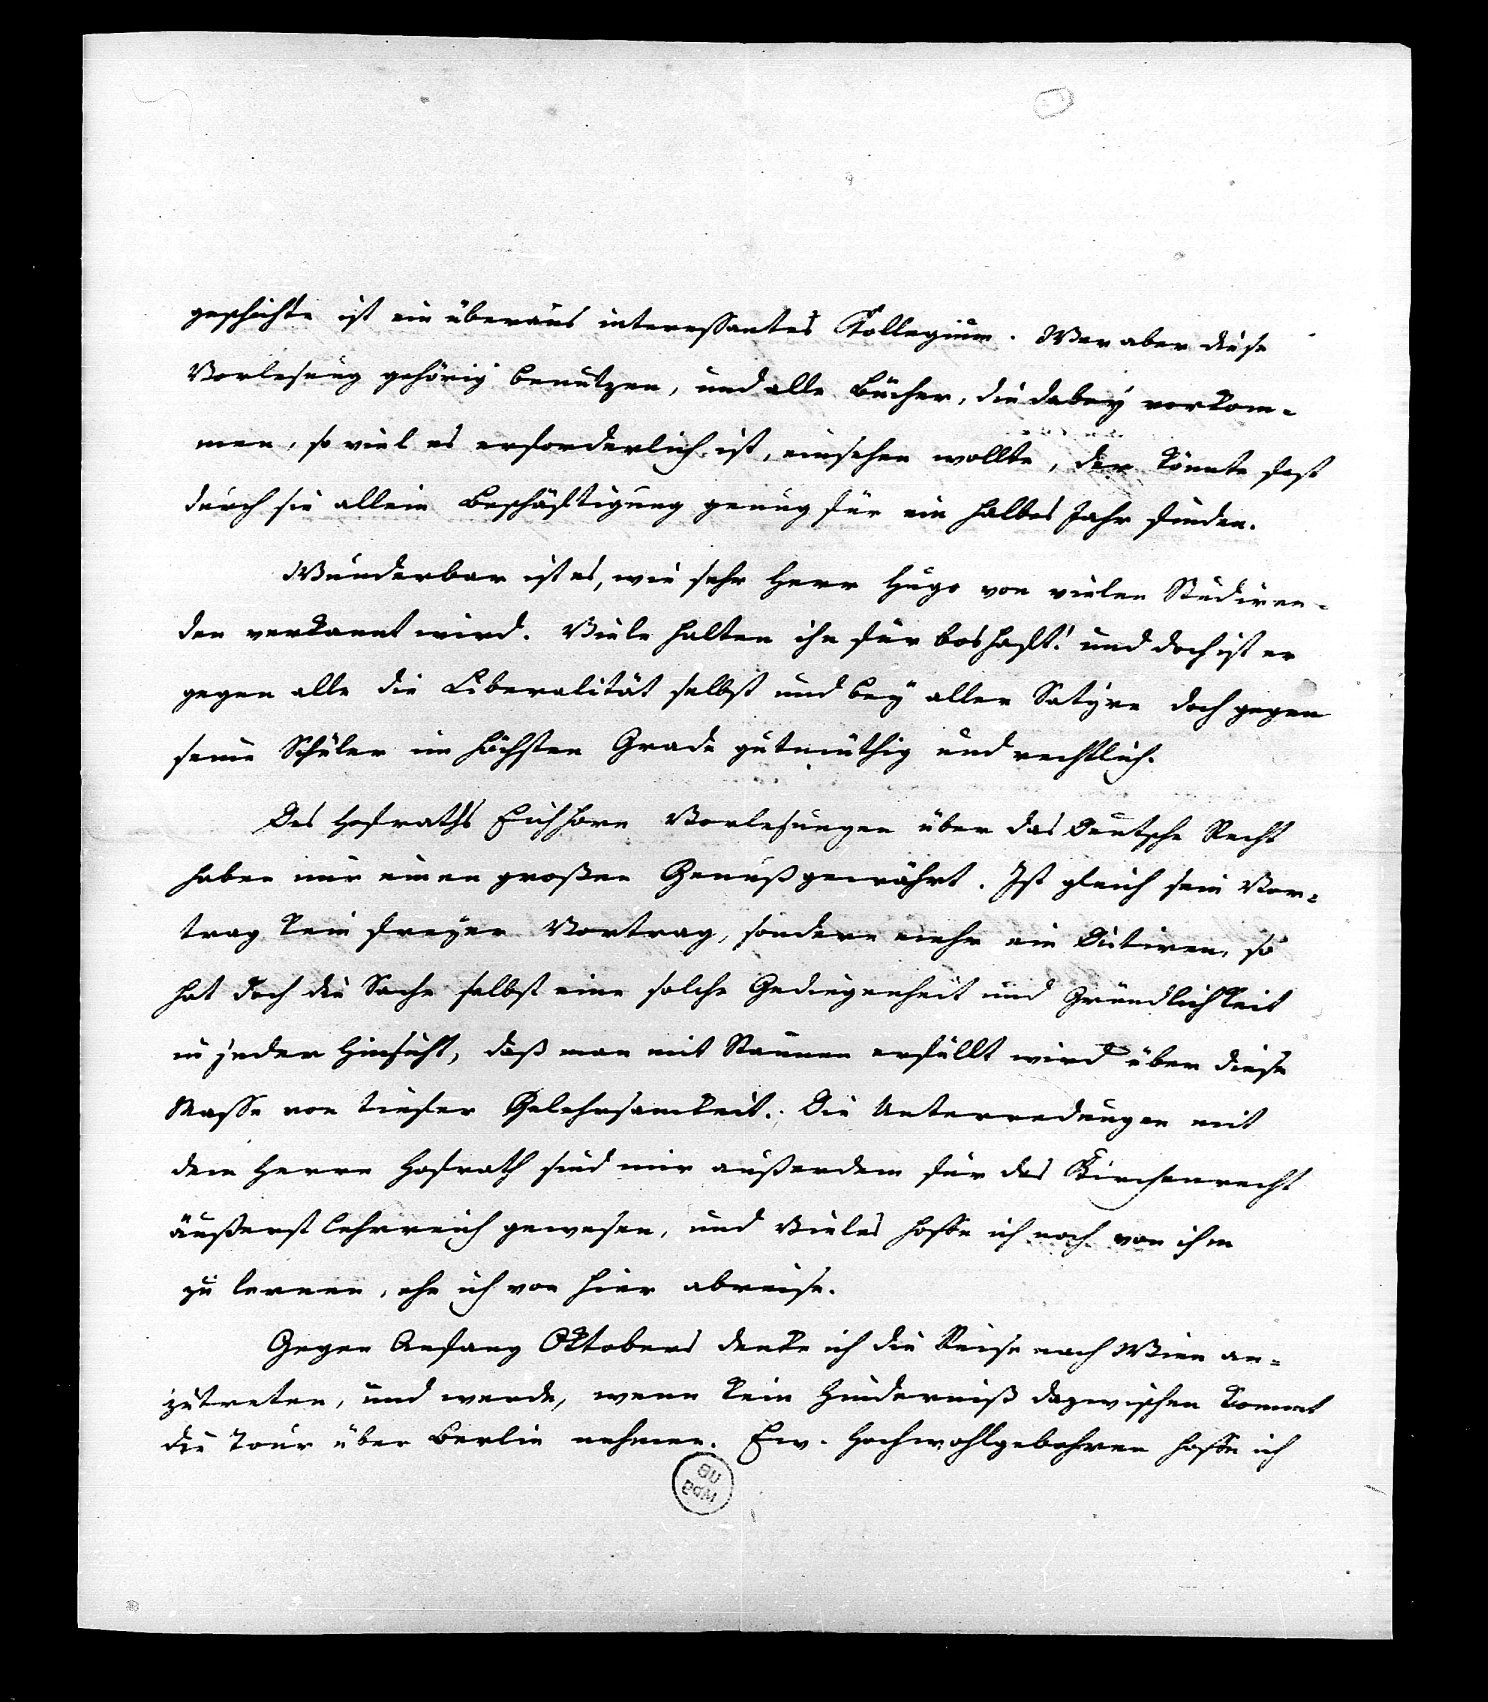 geschichte ist ein überaus interessantes Kollegium. Wer aber diese
Vorlesung gehörig benutzen, und alle Bücher, die dabey vorkom-
men, so viel es erforderlich ist, einsehen wollte, der könnte fast
durch sie allein Beschäftigung genug für ein halbes Jahr finden.
Wunderbar ist es, wie sehr Herr Hugo von vielen Studiren-
den verkannt wird. Viele halten ihn für boshaft! und doch ist er
gegen alle die Liberalität selbst und bey aller Satyre doch gegen
seine Schüler im höchsten Grade gutmüthig und rechtlich.
Des Hofraths Eichhorn Vorlesungen über das Deutsche Recht
haben mir einen großen Genuß gewährt. Ist gleich sein Vor-
trag kein freyer Vortrag, sondern mehr ein Dictiren, so
hat doch die Sache selbst eine solche Gediegenheit und Gründlichkeit
in jeder Hinsicht, daß man mit Staunen erfüllt wird über diese
Masse von tiefer Gelehrsamkeit. Die Unterredungen mit
dem Herrn Hofrath sind mir außerdem für das Kirchenrecht
äußerst lehrreich gewesen, und Vieles hoffe ich noch von ihm
zu lernen, ehe ich von hier abreise.
Gegen Anfang Oktobers denke ich die Reise nach Wien an-
zutreten, und werde, wenn kein Hinderniß dazwischen kommt
die Tour über Berlin nehmen. Ew. Hochwohlgebohren hoffe ich